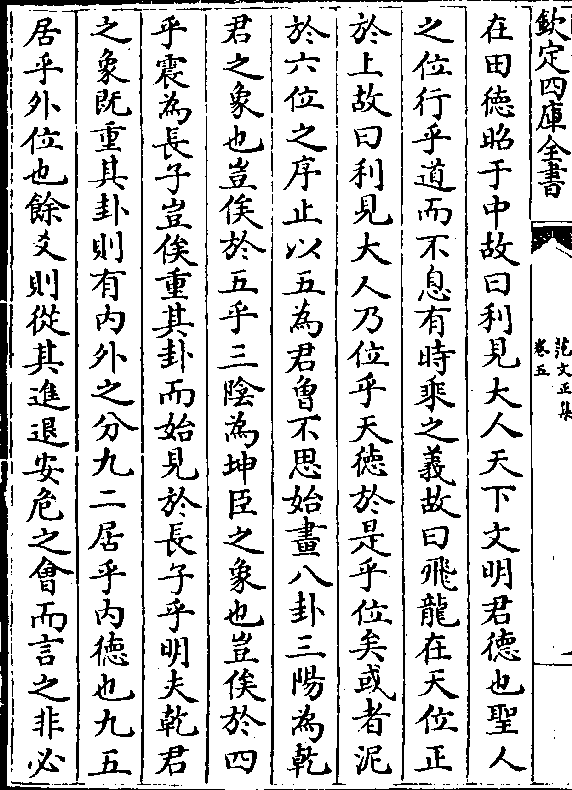 欽定四庫全書
范文正集
卷五
在田徳昭于中故曰利見大人天下文明君徳也聖人
之位行乎道而不息有時乘之義故曰飛龍在天位正
於上故曰利見大人乃位乎天徳於是乎位矣或者泥
於六位之序止以五為君曾不思始畫八卦三陽為乾
君之象也豈俟於五乎三陰為坤臣之象也豈俟於四
乎震為長子豈俟重其卦而始見於長子乎明夫乾君
之象既重其卦則有内外之分九二居乎内徳也九五
居乎外位也餘爻則從其進退安危之會而言之非必